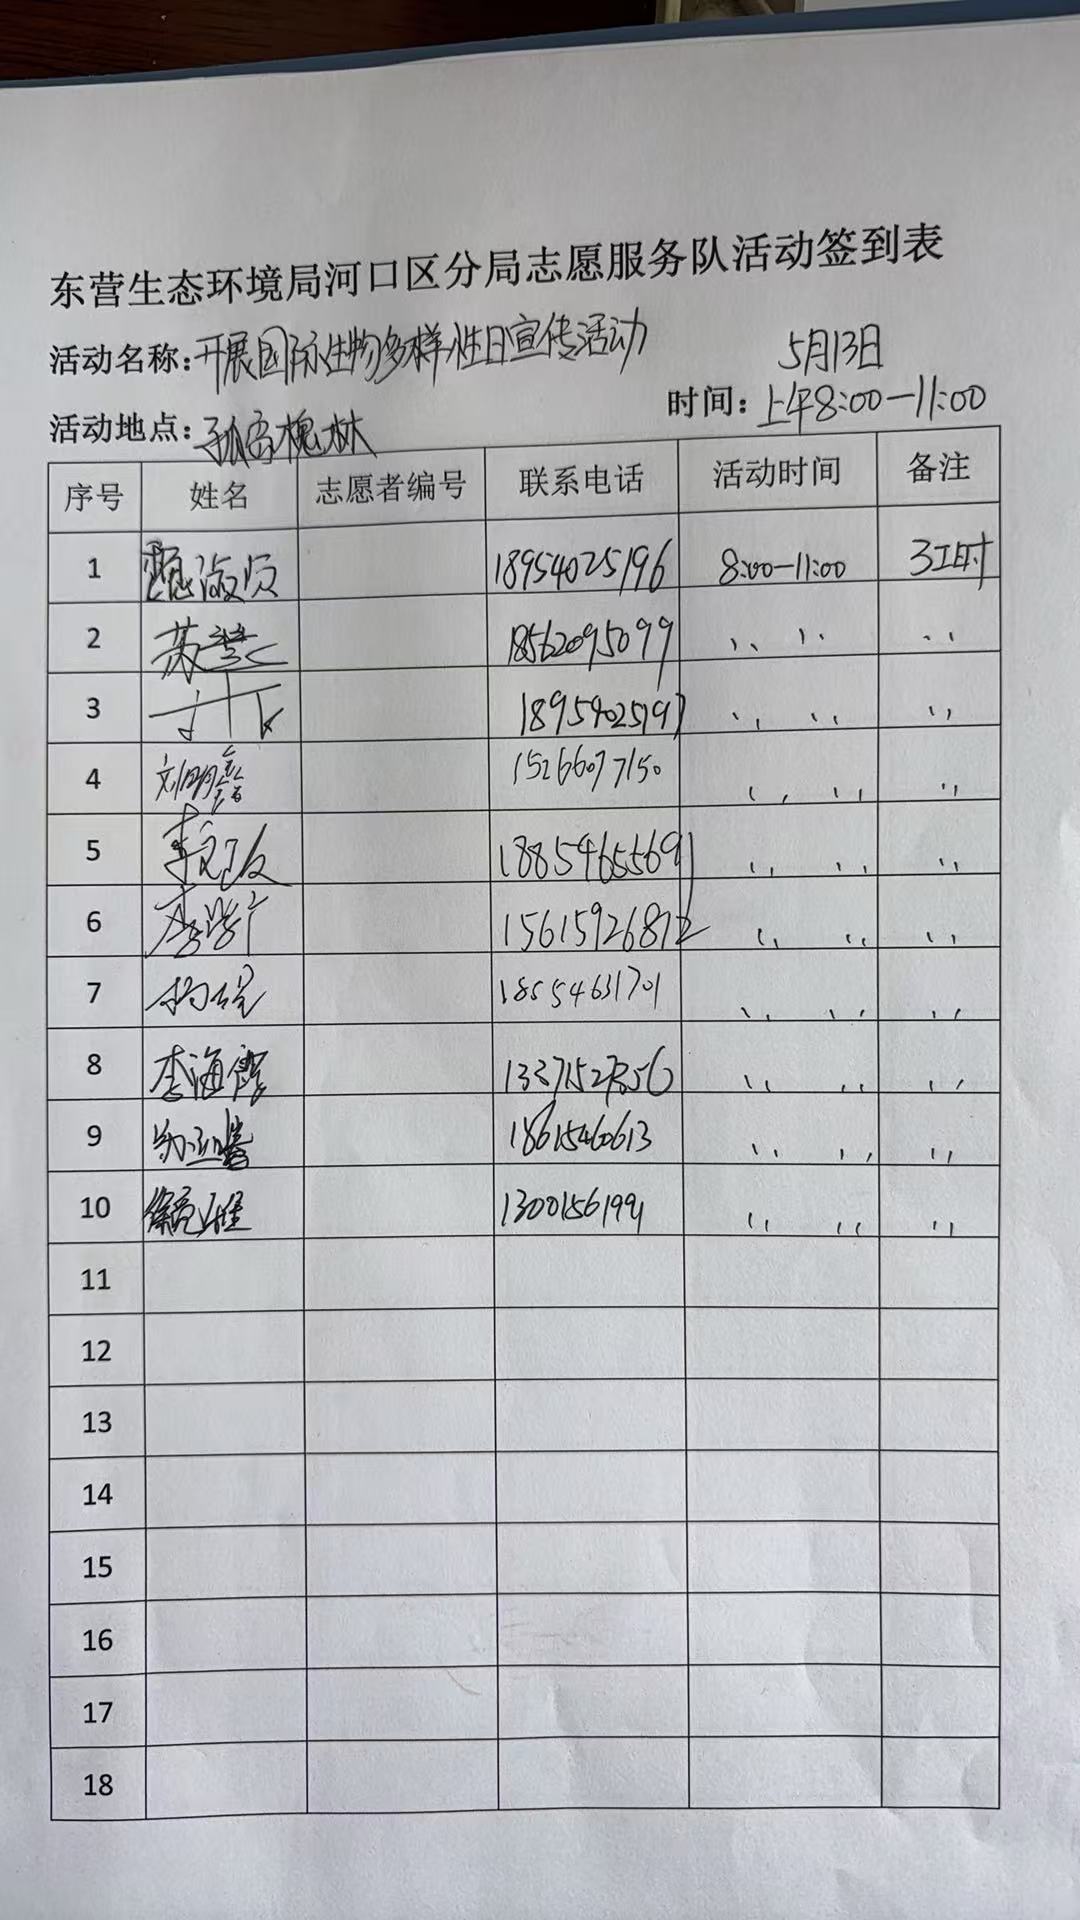 东营生态环境局河口区分局志愿服务队活动签到表
活动名称:开展国际生物多样性日宣传活动 5月13日
活动地点:孤岛槐林 时间:上午8:00-11:00
序号 姓名 志愿者编号 联系电话 活动时间 备注
1 淑贞 18954025196 8:00-11:00 3工时
2 苏慧 18562095099 、、 、、 、、
3 18954025197 、、 、、 、、
4 刘明鑫 15266077150 、、 、、 、、
5 李 18854655691 、、 、、 、、
6 15615926812 、、 、、 、、
7 杨 18554631701 、、 、、 、、
8 李海 、、 、、 、、
9 18615460613 、、 、、 、、
10 徐 13001561991 、、 、、 、、
11
12
13
14
15
16
17
18